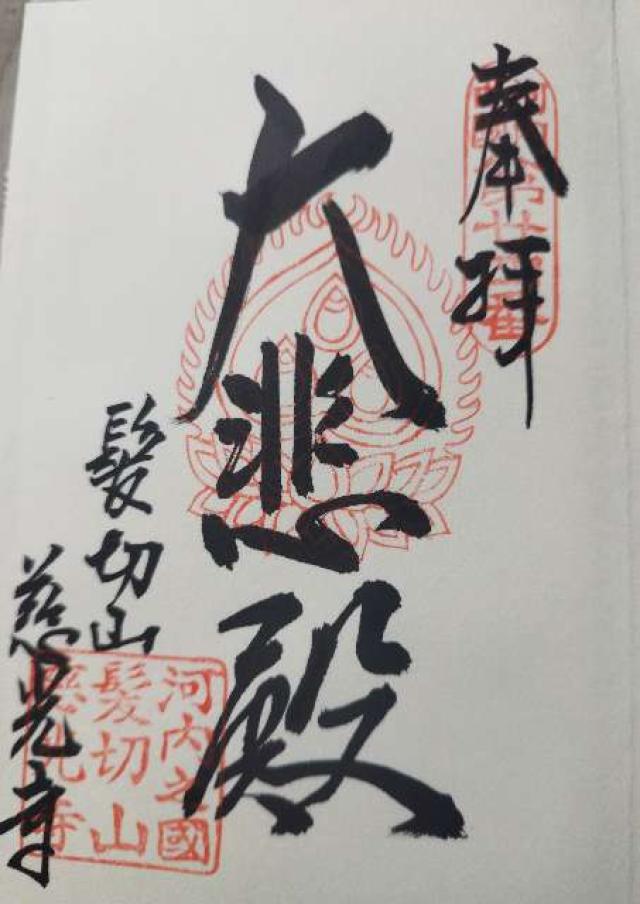 奉拝
大悲殿
髪切山
慈光寺
河内之國
髪切山
慈光寺